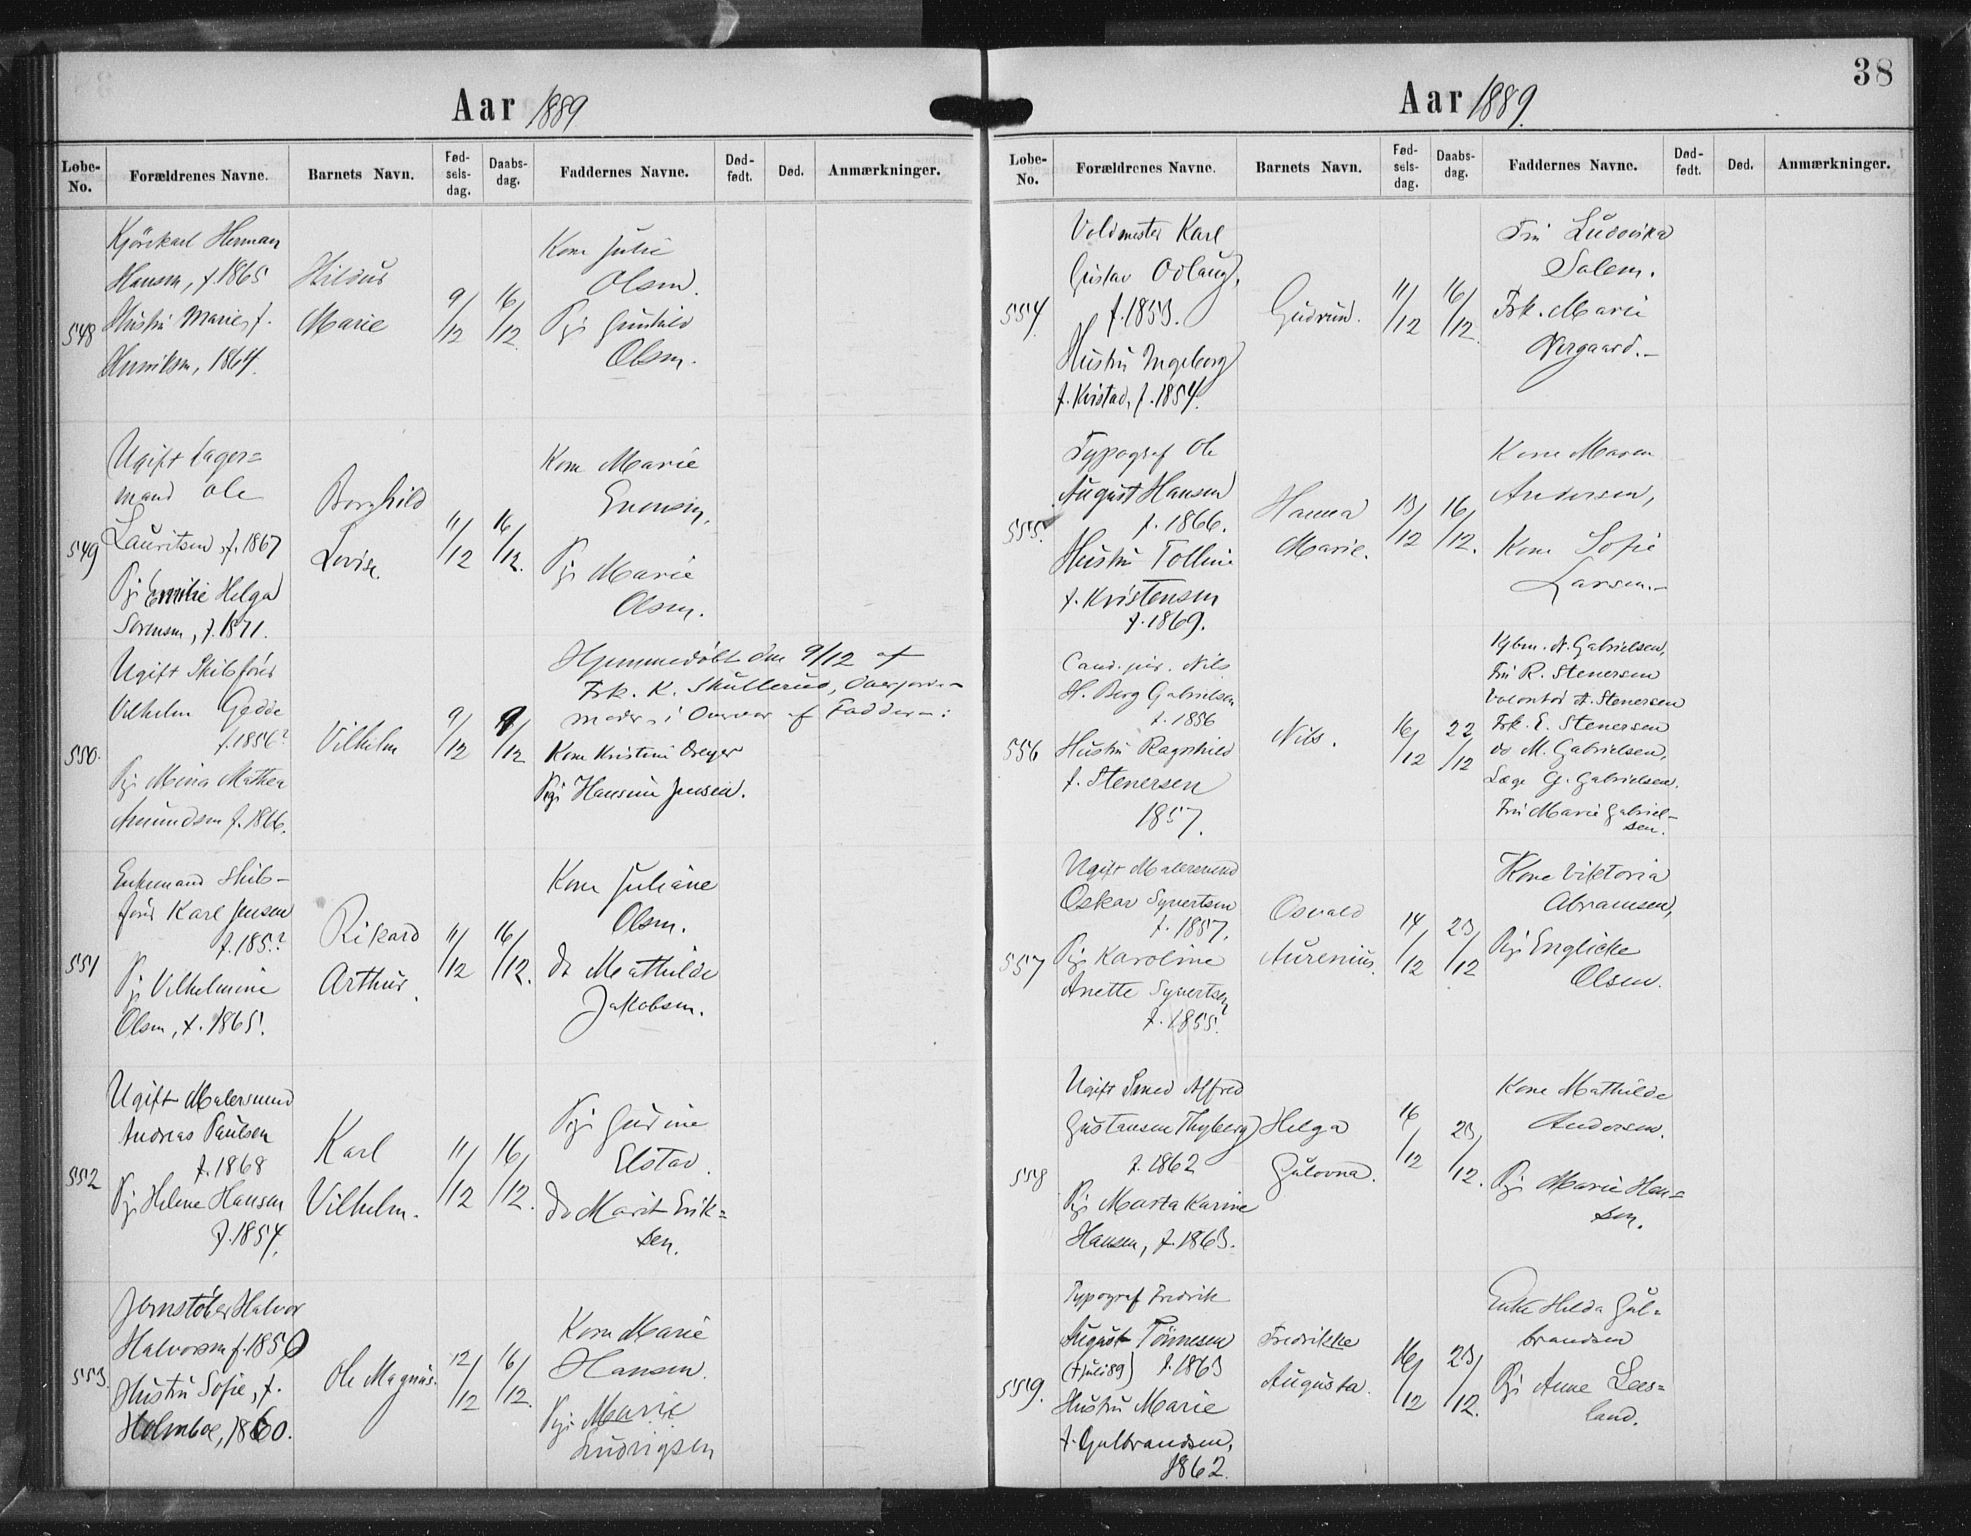 Aar 1889
Løbe-No. Forældrenes Navne. Barnets Navn. Fød-sels-dag. Daabs-dag. Faddernes Navne. Død-født. Død. Anmærkninger.
548
Kjørekarl Herman
Hansen, f. 1865
Hustru Marie, f.
Henriksen, 1864.
Hildur
Marie
9/12
16/12
Kone Julie
Olsen.
Pige Gunhild
Olsen.
549
Ugift Lager=
mand Ole
Lauritsen, f. 1867
Pige Emilie Helga
Sørensen, f. 1871.
Borghild
Lovise.
11/12
16/12.
Kone Marie
Evensen,
Pige Marie
Olsen.
550.
Ugift Skibsfører
Vilhelm Gedde
f. 1856?
Pige Mina Mathea
Amundsen f. 1866.
Vilhelm
9/12
9/12
Hjemmedøbt den 9/12 af
Frk. K. Skullerud, Overjorde-
moder, i Overvær af Faddere:
Kone Kristine Dreyer
Pige Hansine Jensen.
551
Enkemand Skibs-
fører Karl Jensen
f. 185.?
Pige Vilhelmine
Olsen, f. 1865.
Rikard
Arthur.
11/12
16/12.
Kone Juliane
Olsen.
do Mathilde
Jakobsen.
552
Ugift Malersvend
Andreas Paulsen
f. 1868
Pige Helene Hansen
f. 1854.
Karl
Vilhelm.
11/12
16/12.
Pige Gurine
Elstad.
do Marit Erik=
sen.
553.
Jernstøber Halvor
Halvorsen f. 1850
Hustru Sofie, f.
Holmboe, 1860.
Ole Magnus.
12/12
16/12.
Kone Marie
Hansen.
Pige Marie
Ludvigsen
38
Aar 1889.
Løbe-No. Forældrenes Navne. Barnets Navn. Fød-sels-dag. Daabs-dag. Faddernes Navne. Død-født. Død. Anmærkninger.
554.
Voldmester Karl
Gustav Odlaug,
f. 1853.
Hustru Ingeborg
f. Kvistad, f. 1854.
Gudrun.
11/12
16/12.
Fru Ludovika
Salem.
Frk. Marie
Nergaard.-
555.
Typograf Ole
August Hansen
f. 1866.
Hustru Tolline
f. Kristensen
f. 1869.
Hanna
Marie.
13/12
16/12.
Kone Maren
Andersen,
Kone Sofie
Larsen.-
556
Cand. jur. Nils
H. Berg Gabrielsen
f. 1856
Hustru Ragnhild
f. Stenersen
1857.
Nils.
16/12
22/12
Kjbm. N. Gabrielsen,
Fru R. Stenersen
Volontør A. Stenersen
Frk. E. Stenersen
do M. Gabrielsen,
Læge G. Gabrielsen.
Fru Marie Gabriel-
sen.
557
Ugift Malersvend
Oskar Syvertsen
f. 1857.
Pige Karoline
Anette Syvertsen
f. 1855?
Osvald
Aurenius.
14/12
23/12
Kone Viktoria
Abramsen,
Pige Englicke
Olsen.
558
Ugift Smed Alfred
Gustavsen Thyberg
f. 1862
Pige Marta Karine
Hansen, f. 1863.
Helga
Gulovna.
16/12
23/12.
Kone Mathilde
Andersen.
Pige Marie Han=
sen.
559.
Typograf Fredrik
August Tønnesen
(† juli 89) f. 1863
Hustru Marie
f. Gulbrandsen,
1862.
Fredrikke
Augusta.
16/12
23/12.
Enke Hilda Gul=
brandsen
Pige Anne Lees=
land.